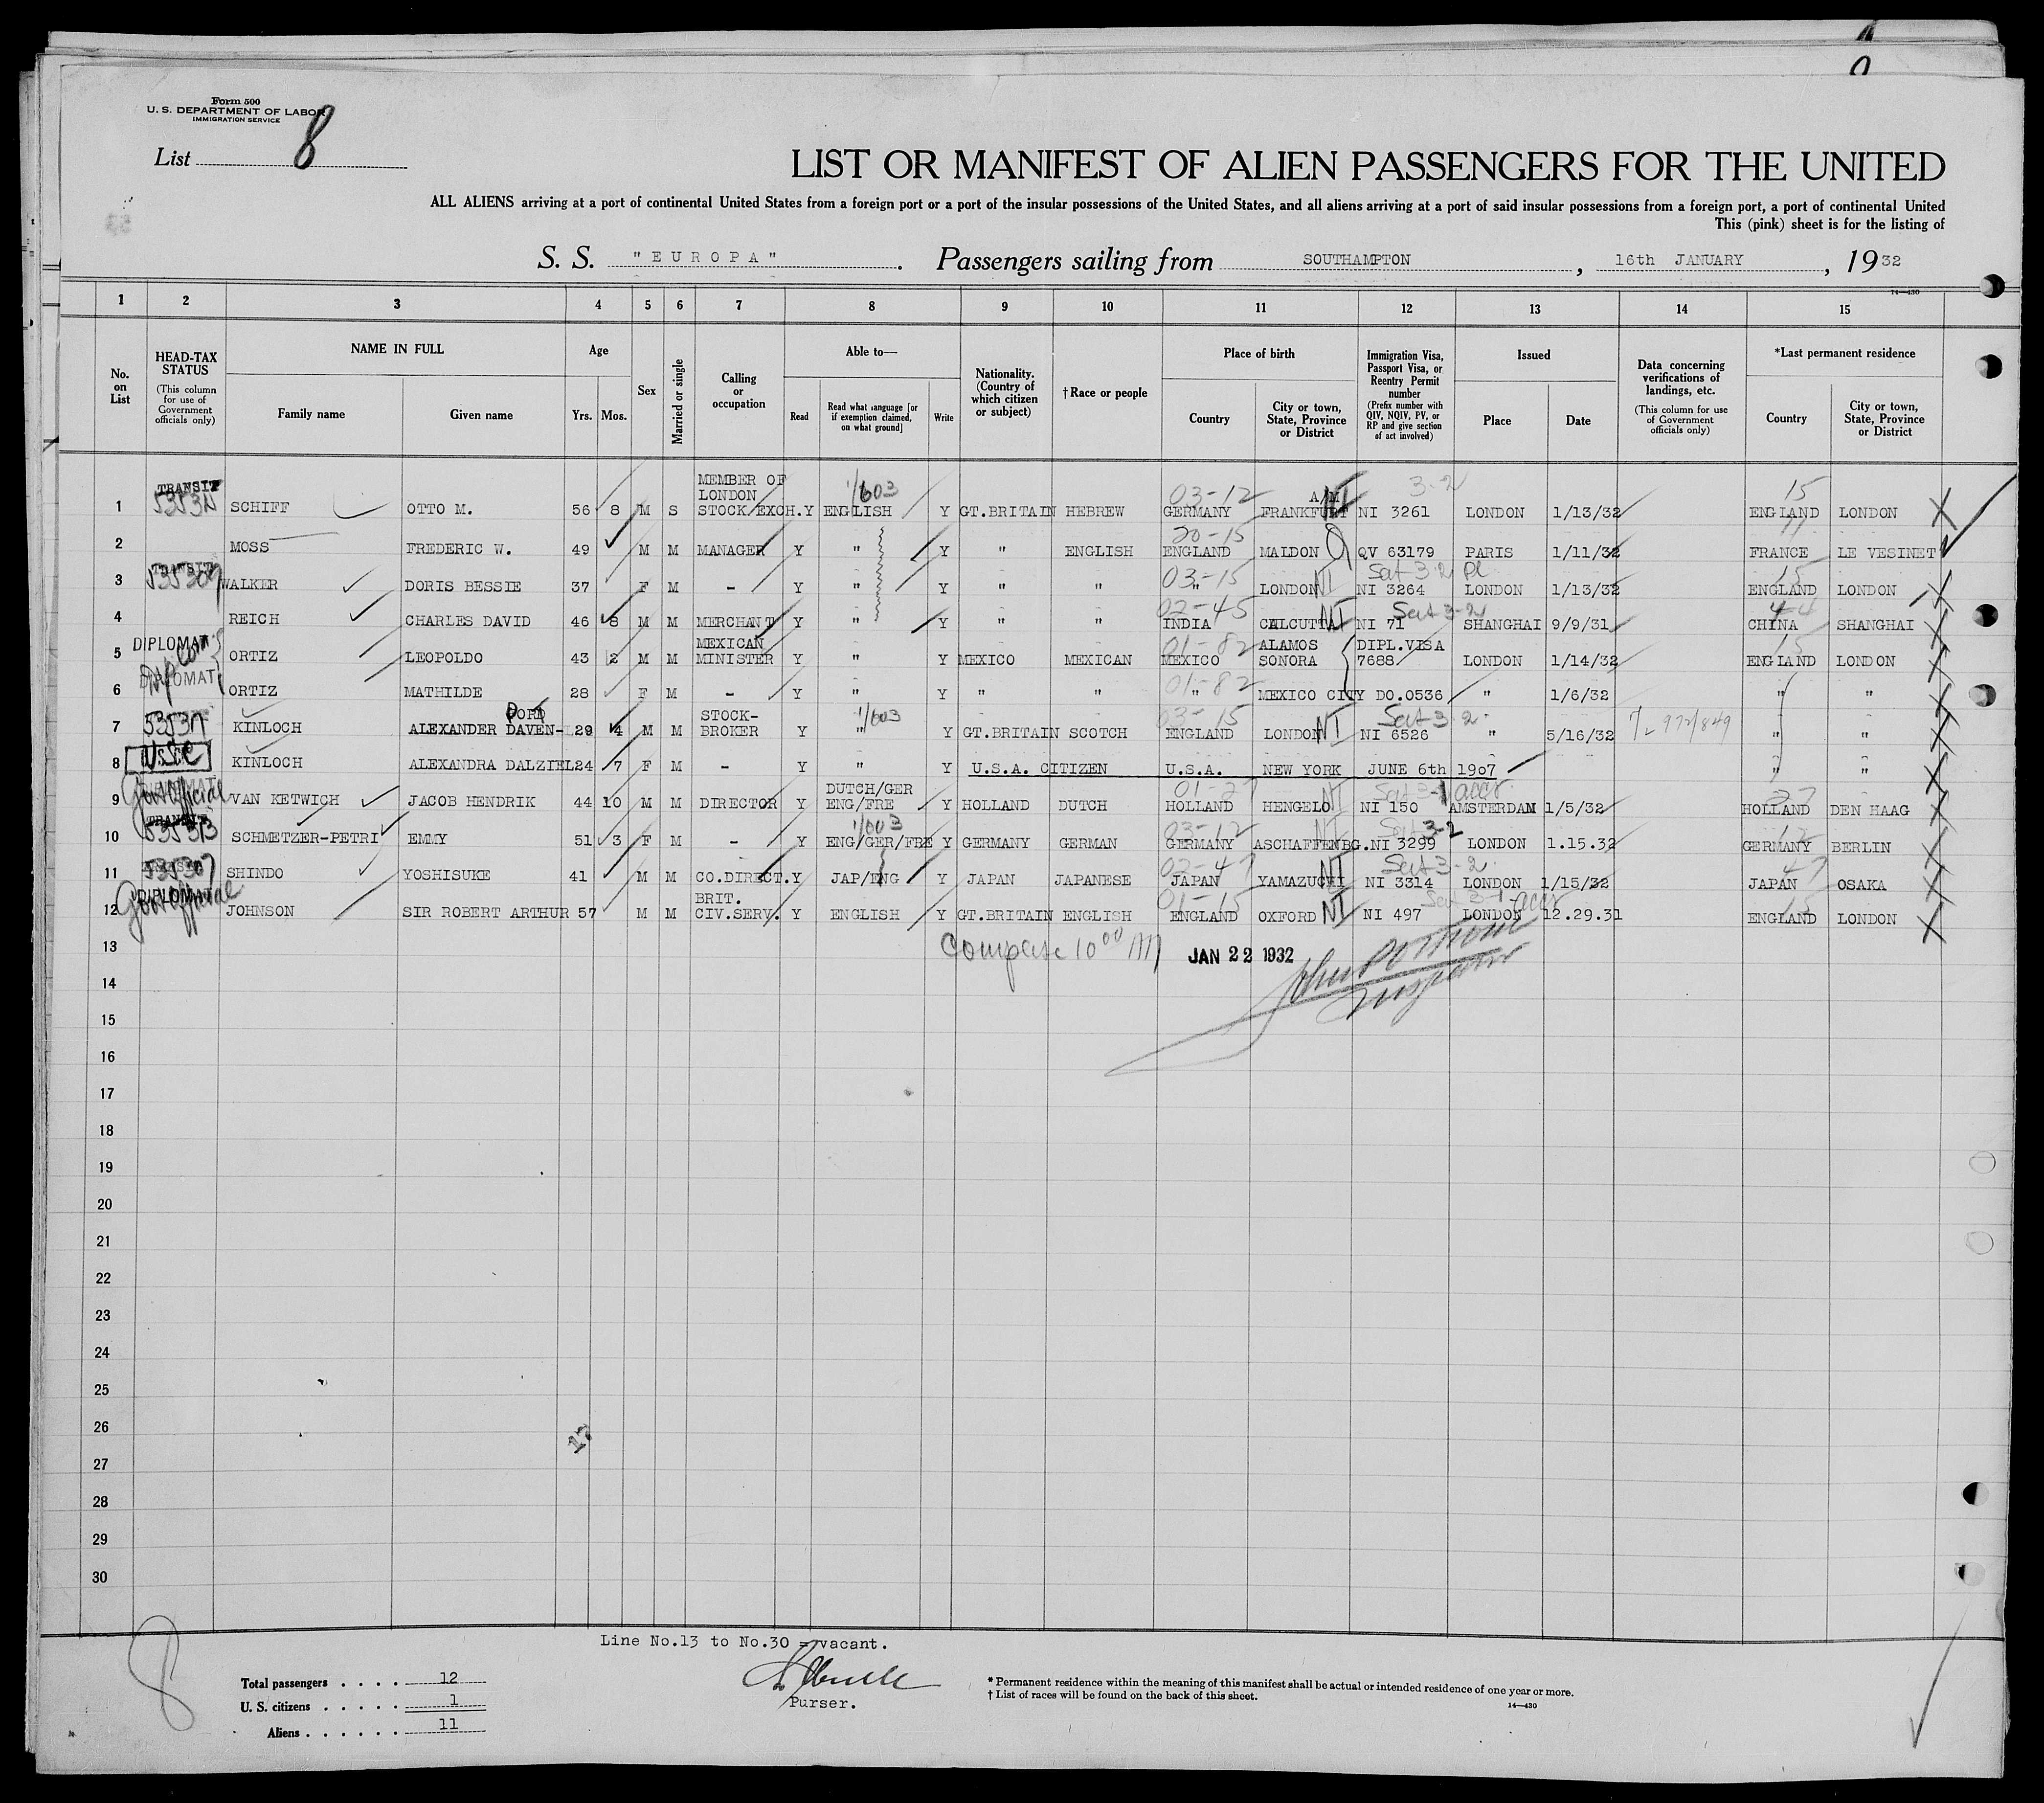 Form 500
U. S. DEPARTMENT OF LABOR
IMMIGRATION SERVICE
List 8
LIST OR MANIFEST OF ALIEN PASSENGERS FOR THE UNITED
ALL ALIENS arriving at a port of continental United States from a foreign port or a port of the insular possessions of the United States, and all aliens arriving at a port of said insular possessions from a foreign port, a port of continental United
This (pink) sheet is for the listing of
S. S. "EUROPA". Passengers sailing from SOUTHAMPTON, 16th JANUARY, 1932
14—430
1 2 3 4 5 6 7 8 9 10 11 12 13 14 15
No. on List
HEAD-TAX STATUS (This column for use of Government officials only)
NAME IN FULL
Family name Given name
Age
Yrs. Mos.
Sex
Married or single
Calling or occupation
Able to—
Read Read what language [or if exemption claimed, on what ground] Write
Nationality. (Country of which citizen or subject)
†Race or people
Place of birth
Country City or town, State, Province or District
Immigration Visa, Passport Visa, or Reentry Permit number (Prefix number with QIV, NQIV, PV, or RP and give section of act involved)
Issued
Place Date
Data concerning verifications of landings, etc. (This column for use of Government officials only)
*Last permanent residence
Country City or town, State, Province or District
TRANSIT 1/603 03-12 A/M NI 3-2 15
1 SCHIFF OTTO M. 56 8 M S MEMBER OF LONDON STOCK EXCH. Y ENGLISH Y GT.BRITAIN HEBREW GERMANY FRANKFURT NI 3261 LONDON 1/13/32 ENGLAND LONDON X
20-15 11
2 MOSS FREDERIC W. 49 M M MANAGER Y " Y " ENGLISH ENGLAND MALDON QV 63179 PARIS 1/11/32 FRANCE LE VESINET
TRANSIT 535309 03-15 NI 3-2 15
3 WALKER DORIS BESSIE 37 F M - Y " Y " " " LONDON NI 3264 LONDON 1/13/32 ENGLAND LONDON X
02-45 NI 3-2
4 REICH CHARLES DAVID 46 8 M M MERCHANT Y " Y " " INDIA CALCUTTA NI 71 SHANGHAI 9/9/31 CHINA SHANGHAI X
DIPLOMAT 01-82 15
5 ORTIZ LEOPOLDO 43 2 M M MEXICAN MINISTER Y " Y MEXICO MEXICAN MEXICO ALAMOS SONORA DIPL.VISA 7688 LONDON 1/14/32 ENGLAND LONDON X
DIPLOMAT 01-82
6 ORTIZ MATHILDE 28 F M - Y " Y " " " MEXICO CITY DO.0536 " 1/6/32 " " X
1/603 03-15 NI 3-2
7 KINLOCH ALEXANDER DAVENPORT 29 4 M M STOCK-BROKER Y " Y GT.BRITAIN SCOTCH ENGLAND LONDON NI 6526 " 5/16/32 972/849 " " X
USC
8 KINLOCH ALEXANDRA DALZIEL 24 7 F M - Y " Y U.S.A. CITIZEN U.S.A. NEW YORK JUNE 6th 1907 " " X
Gov official 01-27 3-1 27
9 VAN KETWICH JACOB HENDRIK 44 10 M M DIRECTOR Y DUTCH/GER ENG/FRE Y HOLLAND DUTCH HOLLAND HENGELO NI 150 AMSTERDAM 1/5/32 HOLLAND DEN HAAG X
TRANSIT 535313 1/603 03-12 NI 3-2 12
10 SCHMETZER-PETRI EMMY 51 3 F M - Y ENG/GER/FRE Y GERMANY GERMAN GERMANY ASCHAFFENBG. NI 3299 LONDON 1.15.32 GERMANY BERLIN X
535307 02-47 NI 3-2 47
11 SHINDO YOSHISUKE 41 M M CO.DIRECT. Y JAP/ENG Y JAPAN JAPANESE JAPAN YAMAZUCHI NI 3314 LONDON 1/15/32 JAPAN OSAKA X
DIPLOMAT Gov official 01-15 NI 3-1 15
12 JOHNSON SIR ROBERT ARTHUR 57 M M BRIT. CIV.SERV. Y ENGLISH Y GT.BRITAIN ENGLISH ENGLAND OXFORD NI 497 LONDON 12.29.31 ENGLAND LONDON X
13 10 00 JAN 22 1932
14 Inspector
15
16
17
18
19
20
21
22
23
24
25
26
27
28
29
30
17
8
Line No.13 to No.30 = vacant.
Purser.
Total passengers . . . . 12
U. S. citizens . . . . . 1
Aliens . . . . . . 11
* Permanent residence within the meaning of this manifest shall be actual or intended residence of one year or more.
† List of races will be found on the back of this sheet.
14—430